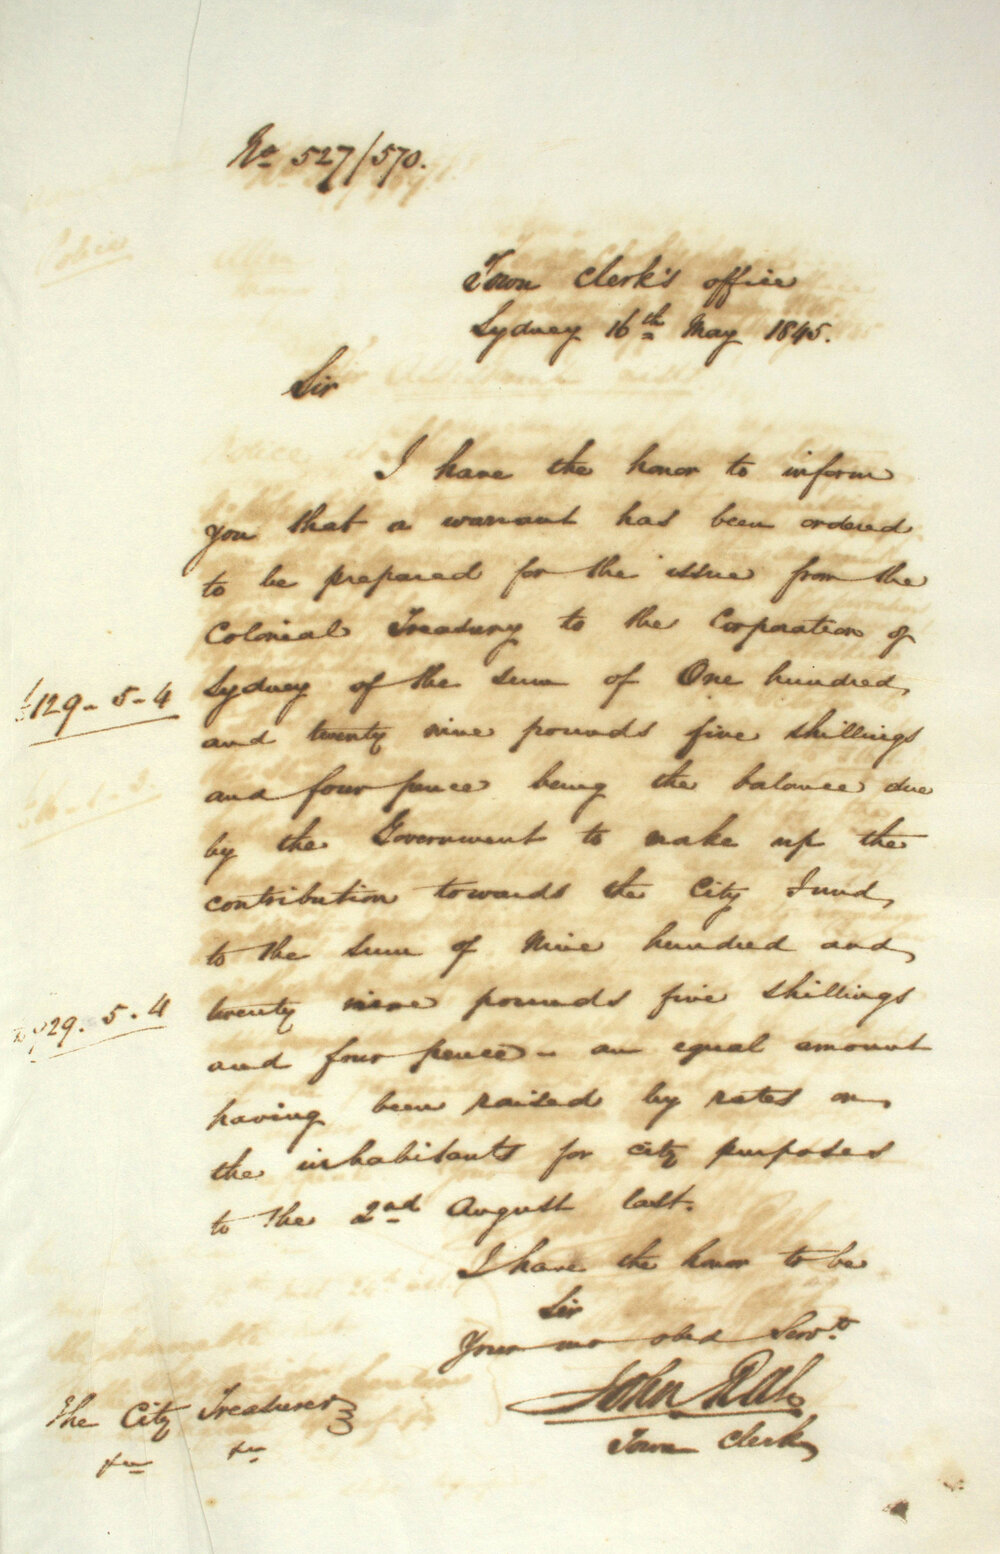 No 527/570.
Town Clerk's office
Sydney 16th May 1845.
Sir
I have the honor to inform
you that a warrant has been ordered
to be prepared for the issue from the
Colonial Treasury to the Corporation of
£129-5-4
Sydney of the sum of One hundred
and twenty nine pounds five shillings
and four pence being the balance due
by the Government to make up the
contribution towards the City Fund
to the sum of Nine hundred and
£929.5.4
twenty nine pounds five shillings
and four pence - an equal amount
having been raised by rates on
the inhabitants for city purposes
to the 2nd August last.
I have the honor to be
Sir
Your mo obed Servt
John
Town Clerk
The City Treasurer